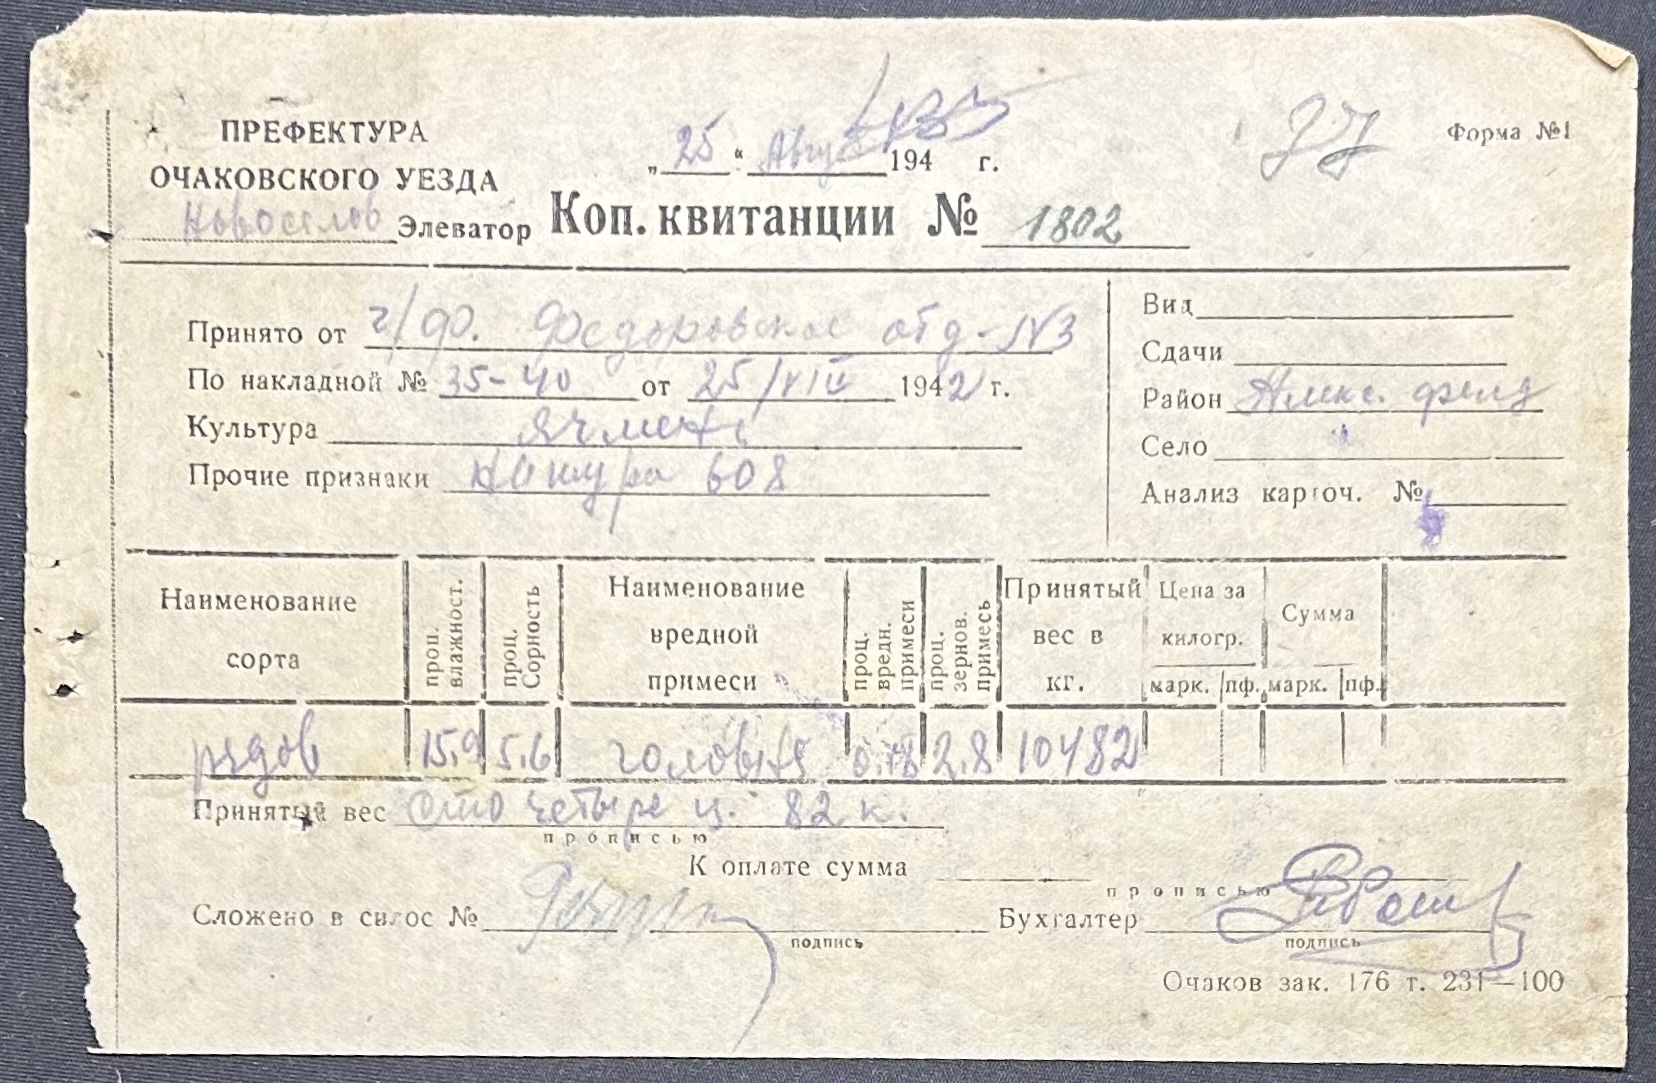 ПРЕФЕКТУРА
ОЧАКОВСКОГО УЕЗДА
Новоселов Элеватор
„25“ Август 194 г.
Форма №1
Коп. квитанции № 1802
Принято от г/ф. Федоровское отд-№3
По накладной № 35-40 от 25/VIII 1942 г.
Культура ячмень
Прочие признаки Натура 608
Вид
Сдачи
Район Алекс. фельд
Село
Анализ карточ. №
Наименование сорта
проц. влажност.
проц. Сорность
Наименование вредной примеси
проц. вредн. примеси
проц. зернов. примесь
Принятый вес в кг.
Цена за килогр.
марк. пф.
Сумма
марк. пф.
рядов 15.9 5.6 головня 2.8 10482
Принятый вес сто четыре ц. 82 к.
прописью
К оплате сумма
прописью
Сложено в силос №
подпись
Бухгалтер
подпись
Очаков зак. 176 т. 231—100